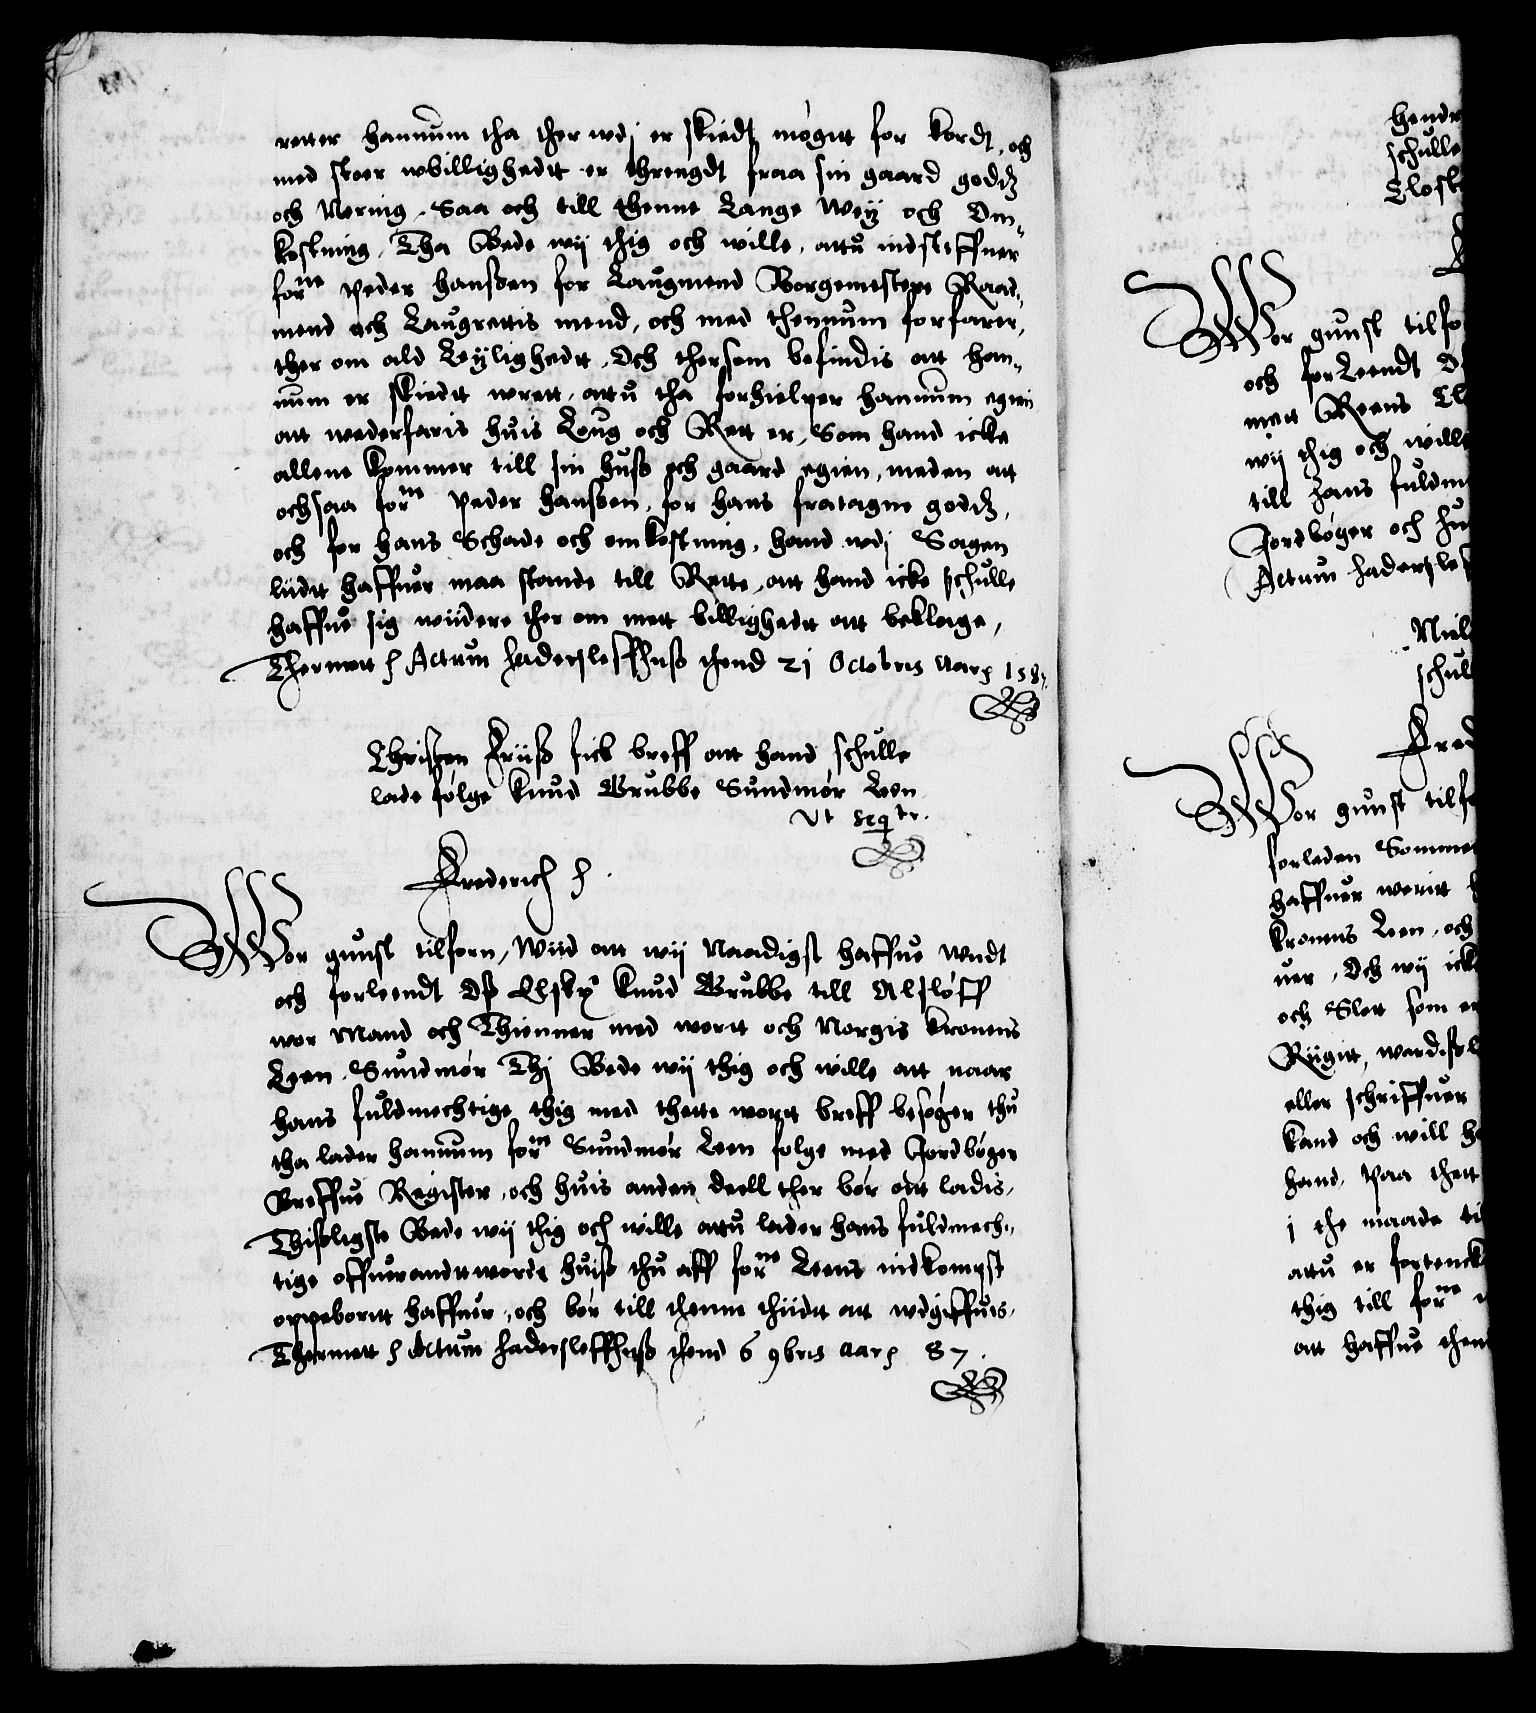 retter hannum tha ther wdj er skiedt møgitt for kordt, och
med stoer wbillighedtt er threngdt fraa sin gaard godz
och Nering, Saa och till thenne Lange Weÿ och Om-
kostning, Tha Bede wij thig och wille, attu indsteffner
forne Peder Hanssen for Laugmend Borgemestere Raad-
mend och Laugrettis mend, och med thennum forfarer,
ther om ald Leÿlighedtt, Och thersom befindis att han-
num er skiedtt wrett, attu tha forhielper hannum egien
att wederfaris huis Loug och Rett er, Som hand icke
allene kommer till sin huss och gaard egien, meden att
ochsaa forne Peder Hanssen, for hans fratagne godz,
och for hans Schade och omkostning, hand wdj Sagen
liidtt haffuer maa stande till Rette, att hand icke schulle
haffue sig wiidere ther om mett billighedtt att beklage,
Thermett Actum Haderssleffhuss thend 21 Octobris Aar 158
Christen Friiss fick breff att hand schulle
lade følge Knud Grubbe Sundmør Leen
Vt seqtr.
Frederich
Wor gunst tilforn, Wiid att wij Naadigst haffue wndt
och forleendt Oss Elske Knud Grubbe till Alsløff
wor Mand och Thienner med wortt och Norgis Kronens
Leen Sundmør Thj Bede wij thig och wille att naar
hans fuldmechtige thig med thette wortt breff besøger thu
tha lader hannum forne Sundmør Leen følge med Jordbøger
Breffue Register, och huis anden deell ther bør att ladis,
Thisligste Bede wij thig och wille attu lader hans fuldmech-
tige offuerandtworde huiss thu aff forne Leens indkompst
oppebortt haffuer, och bør till thenne thiidtt att wdgiffuis,
Thermett Actum Haderssleffhuss thend 6 9bris Aar 87.
Hend
schulle
Closte
Wor gunst tilfo
och forleendt
mett Reens Cl
wij thig och wille
till hans fuldm
Jordbøger och hu
Actum Haderssle
Niel
schul
Fred
Wor gunst tilfo
forleden Somme
haffuer werit
kronens Leen, och
uer, Och wij icke
och Slett som er
Riigitt,
eller schriffuer
kand och will
hand, paa thett
j the maade ti
attu er fortenck
thig till forne
att haffue then